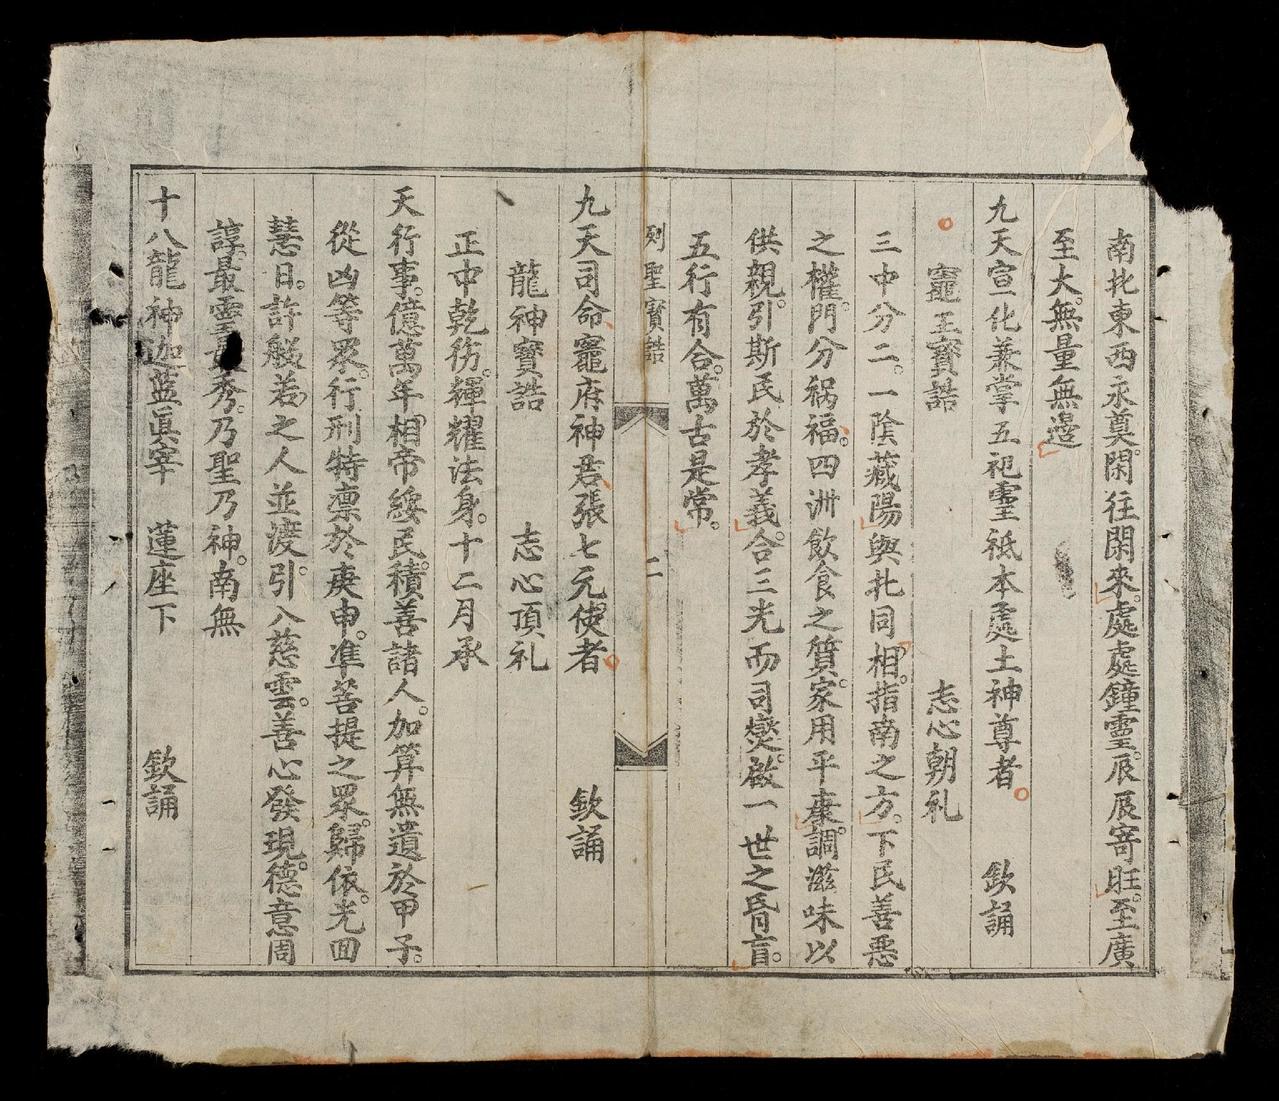 南北東西永奠。閑往閑來。處處鐘靈。辰辰寄旺。至廣
至大。無量無邊
九天宣化兼掌五祀靈祇本處土神尊者。 欽誦
竈王寶誥 志心朝礼
三中分二。一陰藏陽。與北同相。指南之方。下民善惡
之權。門分禍福。四洲飲食之質。家用平康。調滋味以
供親。引斯民於孝義。合三光而司爕。啟一世之昏盲。
五行有合。萬古是常。
列聖寳誥 二
九天司命竈府神君張七元使者。 欽誦
龍神寶誥 志心頂礼
正中乾。輝耀法身。十二月承
天行事。億萬年相帝綏民。積善諸人。加筭無遺於甲子。
從凶等眾。行刑特凛於庚申。準菩提之眾。歸依。光回
慧日。許般若之人並渡。引八慈雲。善心發現。德意周
諄。最靈最秀。乃聖乃神。南無
十八龍神迦藍眞宰 蓮座下 欽誦